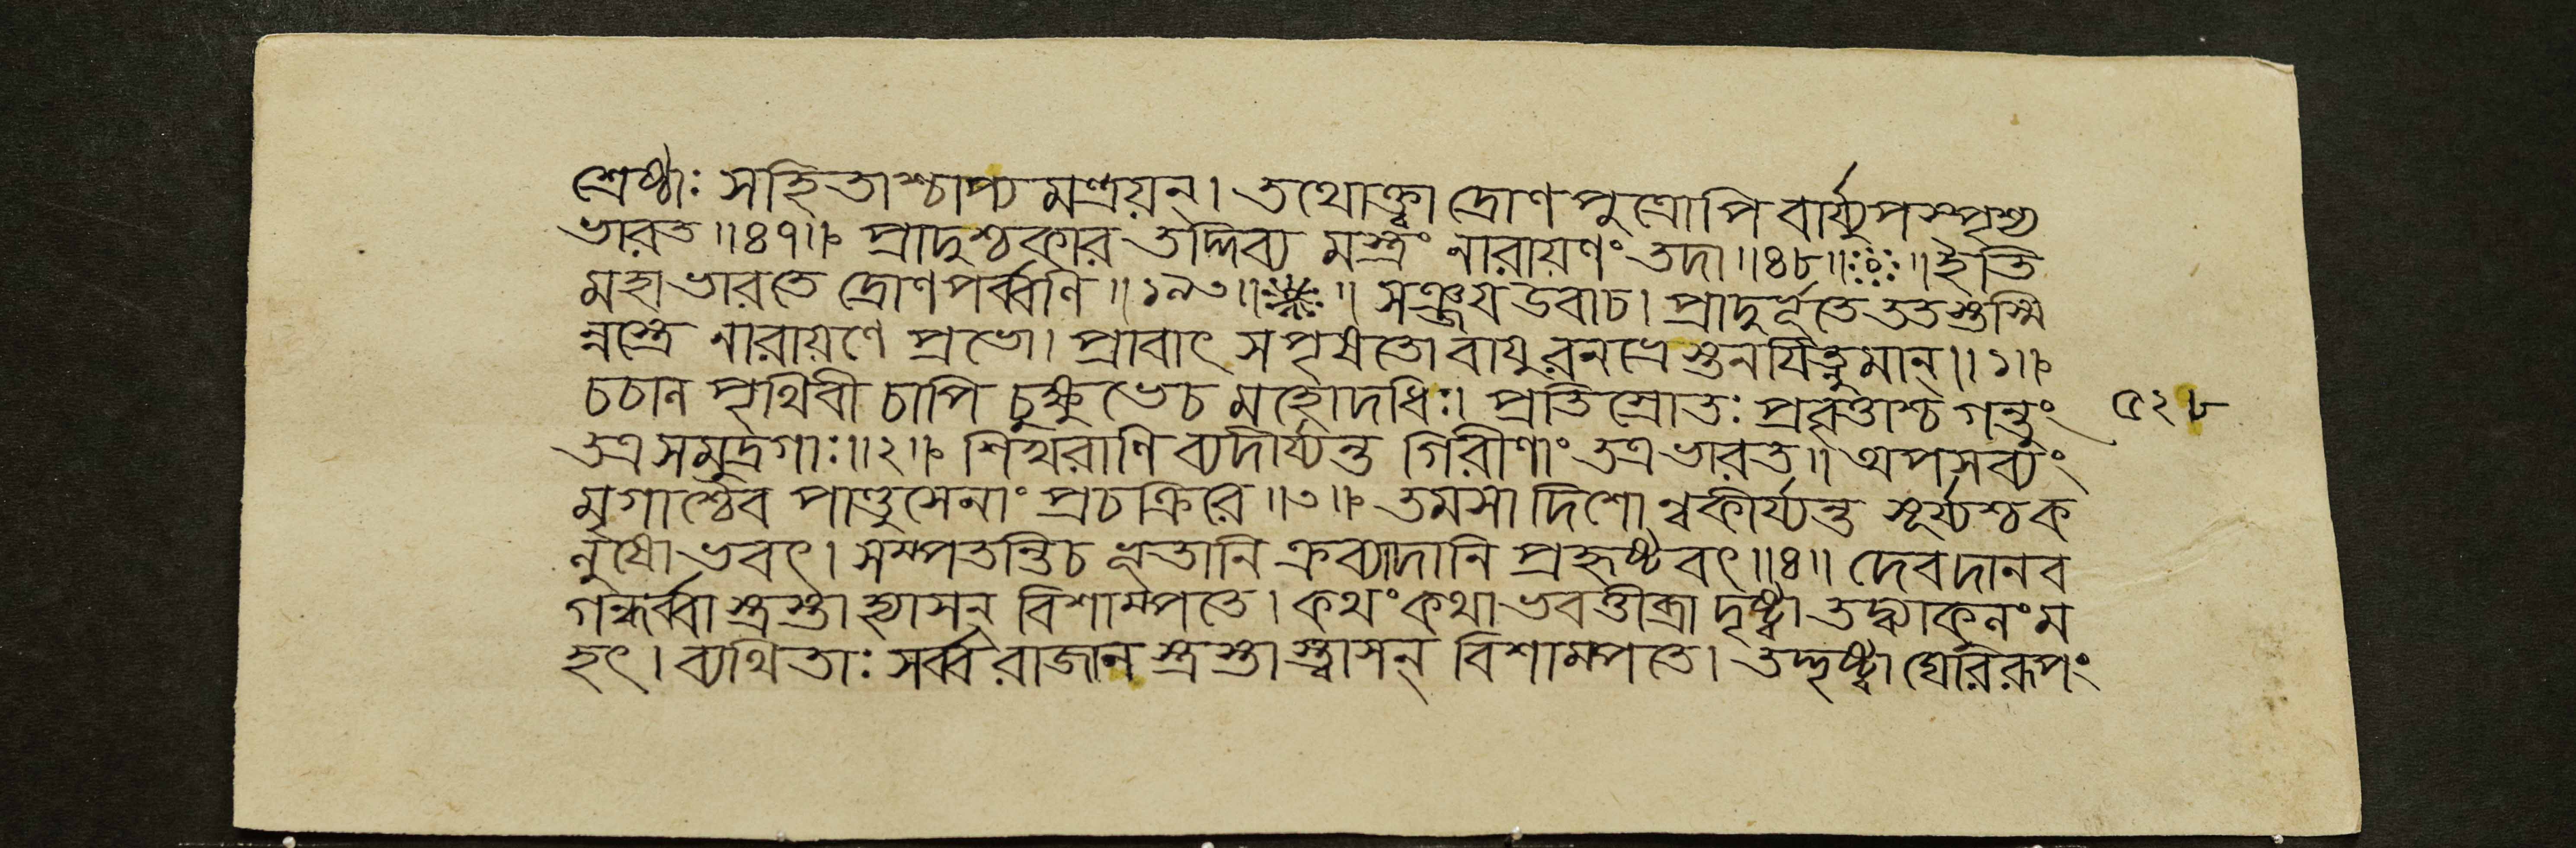 শ্রেষ্ঠাঃ সহিতাশ্চাপ্য মন্ত্রয়ন্। তথোক্ত্বা দ্রোণ পুত্রোপি বার্য্যুপস্পৃশ্য
ভারত॥৪৭॥ঃ প্রাদুশ্চকার তদ্দিব্য মস্ত্রং নারায়ণং তদা॥৪৮॥ঃ০ঃ॥ইতি
মহাভারতে দ্রোণপর্ব্বণি॥১৯৩॥ঃ॥ সঞ্জয উবাচ। প্রাদুর্ভূতে ততস্তস্মি
ন্নস্ত্রে নারায়ণে প্রভো। প্রাবাৎ সপৃষতো বাযুরনভ্রে স্তনযিত্নুমান্॥১॥ঃ
চচান পৃথিবী চাপি চুক্ষুভেচ মহোদধিঃ। প্রতিস্রোতঃ প্রবৃত্তাশ্চ গন্তুং ৫২৮
তত্র সমুদ্রগাঃ॥২॥ঃ শিখরাণি ব্যদীর্য্যন্ত গিরীণাং তত্র ভারত॥ অপসব্যং
মৃগাশ্চৈব পাণ্ডুসেনাং প্রচক্রিরে॥৩॥ঃ তমসা দিশো ন্বকীর্য্যন্ত সূর্য্যশ্চ ক
নুষো ভবৎ। সম্পতন্তিচ ভূতানি ক্রব্যাদানি প্রহৃষ্টবৎ॥৪॥ দেবদানব
গন্ধর্ব্বা স্ত্রস্তা হ্যাসন্ বিশাম্পতে। কথং কথা ভবত্তীব্রা দৃষ্ট্বা তদ্ব্যাকুনং ম
হৎ। ব্যথিতাঃ সর্ব্ব রাজান স্ত্রস্তা স্ত্বাসন্ বিশাম্পতে। তদ্দৃষ্ট্বা ঘোররূপং